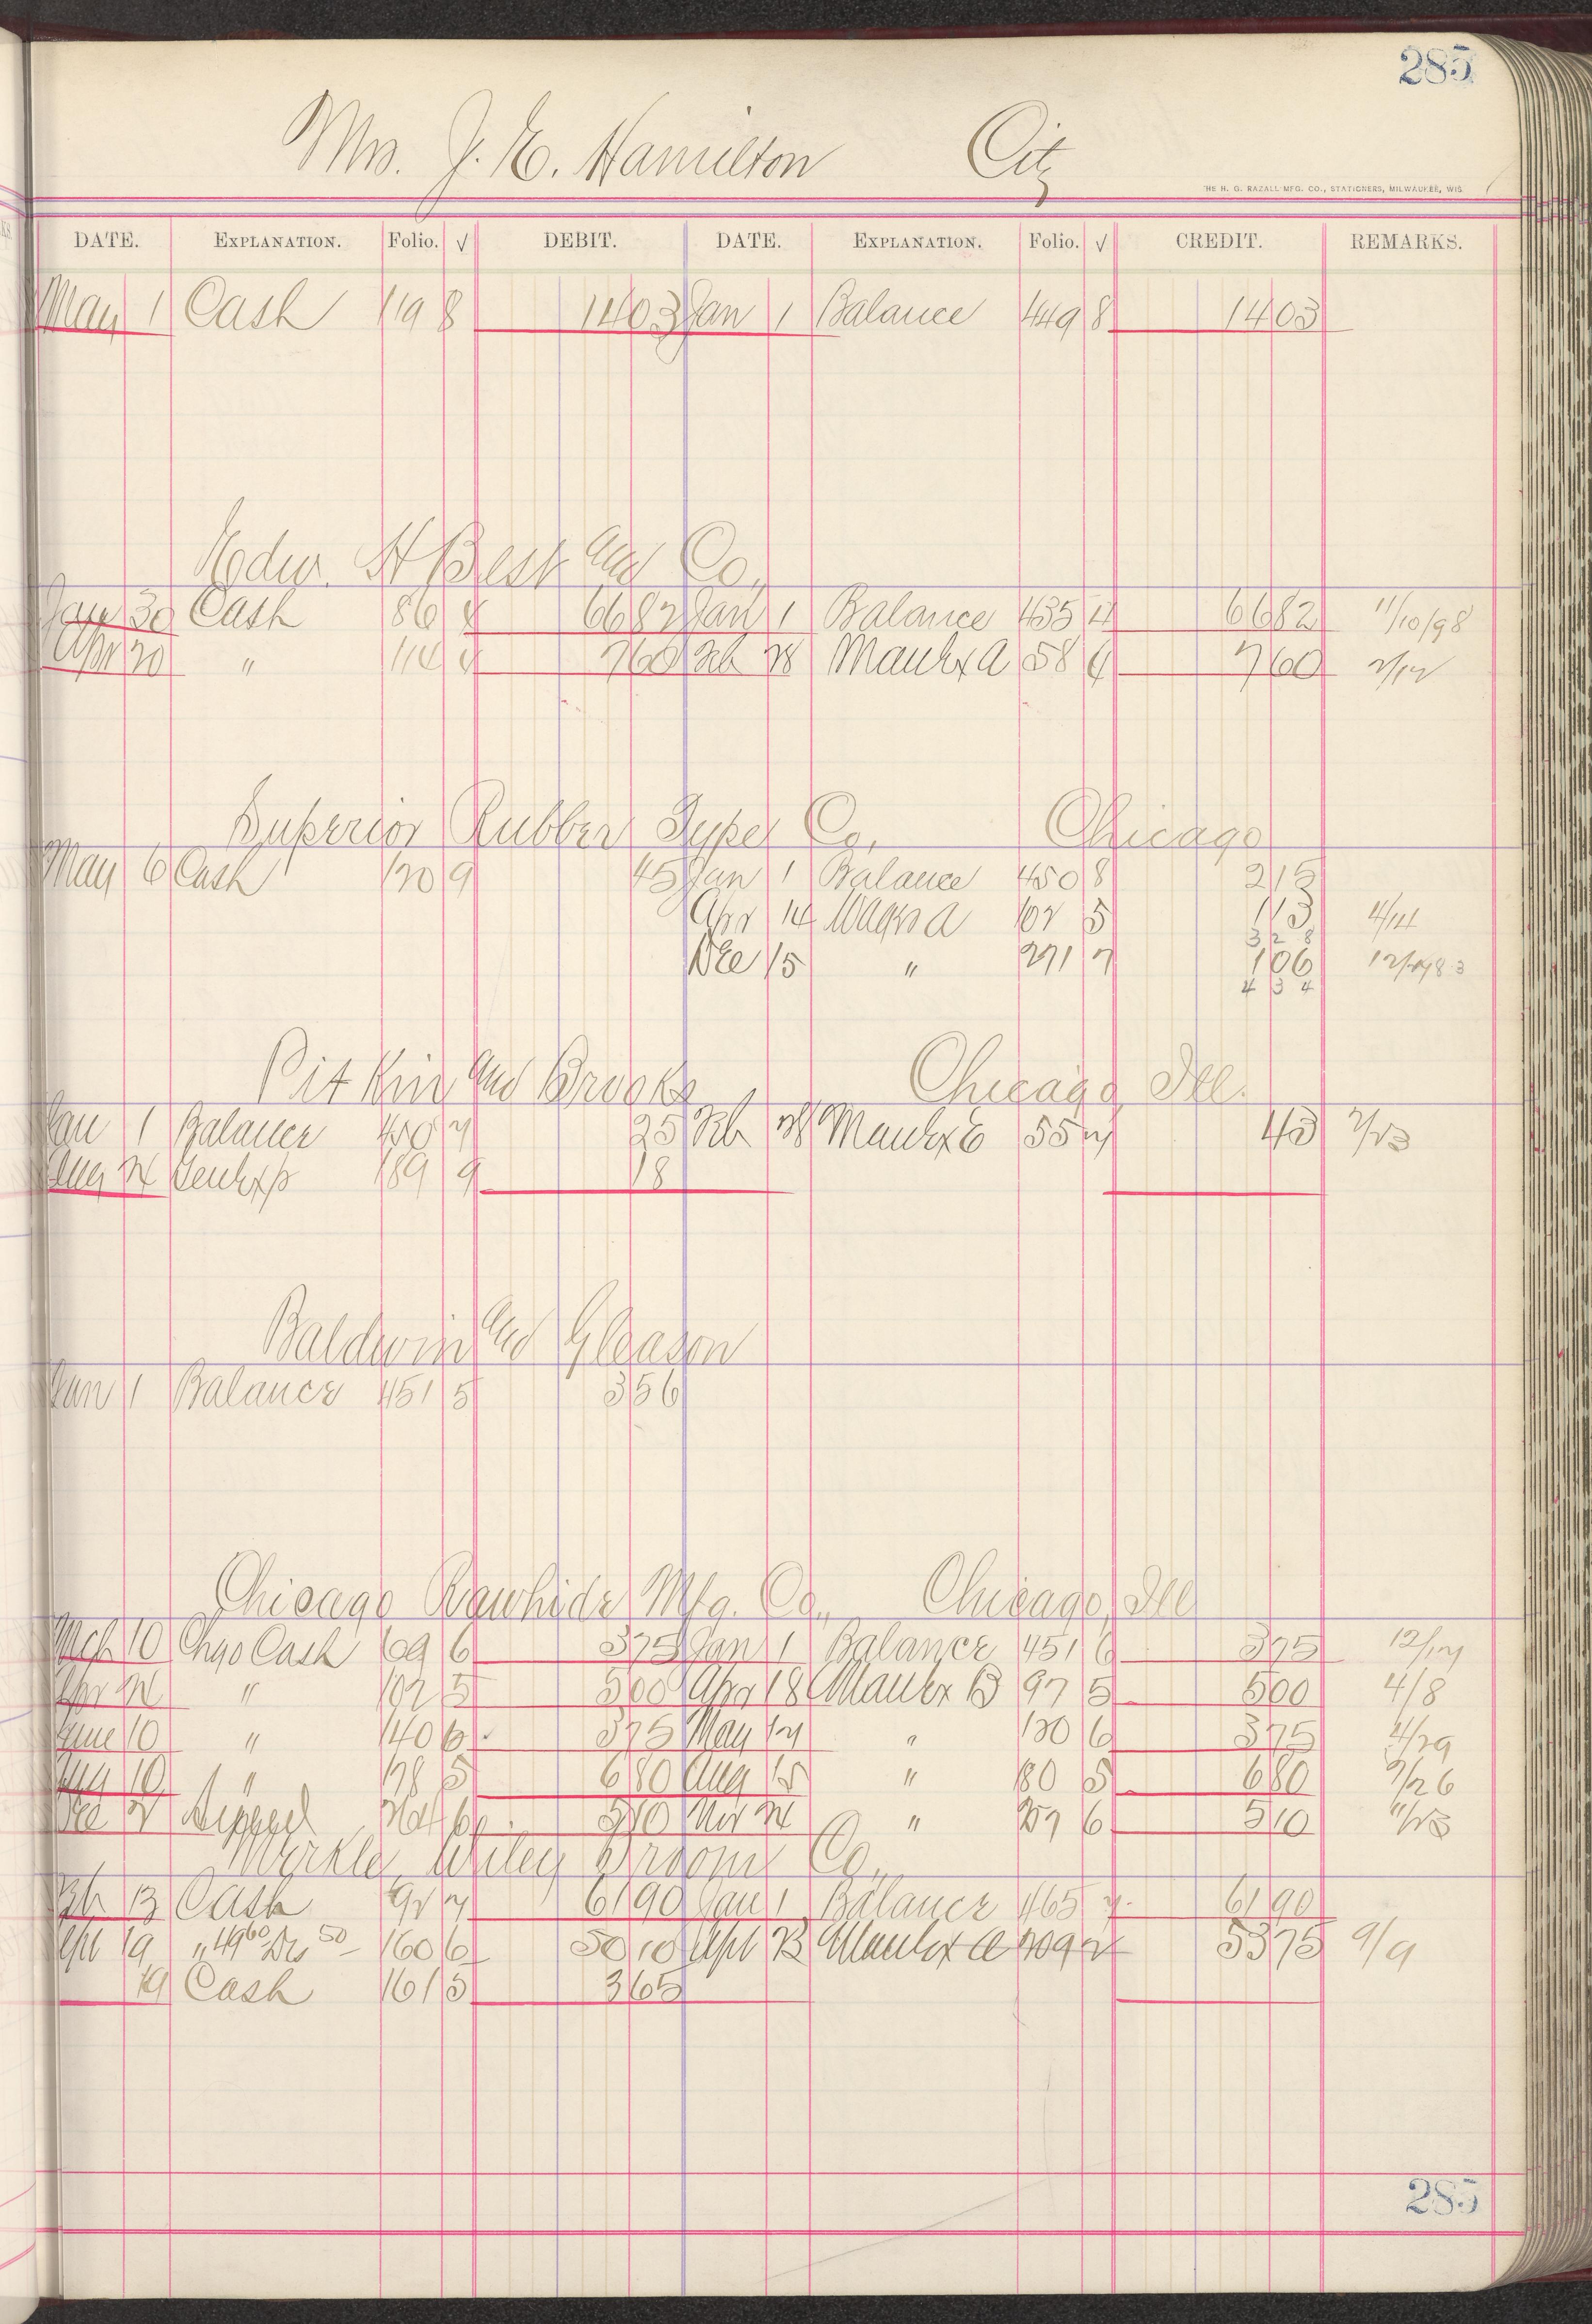 285
Mrs. J. E. Hamilton City
THE H. G. RAZALL MFG. CO., STATIONERS, MILWAUKEE, WIS.
DATE. EXPLANATION. Folio. √ DEBIT. DATE. EXPLANATION. Folio. √ CREDIT. REMARKS.
May 1 Cash 119 8 1403 Jan 1 Balance 449 8 1403
Edw. H Best and Co.
Jan 30 Cash 86 4 6682 Jan 1 Balance 435 4 6682 11/10/98
Apr 20 " 114 4 760 Feb 28 Manlex A 58 4 760 2/12
Superior Rubber Type Co. Chicago
May 6 Cash 120 9 45 Jan 1 Balance 450 8 215
Apr 14 Wagn A 102 5 113 4/14
3 2 8
Dec 15 " 271 7 106
4 3 4
Pitkin and Brooks Chicago Ill.
Jan 1 Balance 450 7 25 Feb 28 Manlex E 55 7 43 2/23
Aug 24 Genlexp 189 9 18
Baldwin and Gleason
Jan 1 Balance 451 5 356
Chicago Rawhide Mfg. Co., Chicago, Ill
Mch 10 Chgo Cash 69 6 375 Jan 1 Balance 451 6 375 12/17
Apr 24 " 102 5 500 Apr 18 Manlex B 97 5 500 4/8
June 10 " 140 6 375 May 17 " 120 6 375 4/29
Aug 10 " 178 5 680 Aug 15 " 180 5 680 7/26
Dec 2 264 6 510 Nov 24 " 257 6 510 11/23
Merkle Wiley Broom Co.,
Feb 13 Cash 92 7 6190 Jan 1 Balance 465 7 6190
Spt 19 " 49 60 Ds 50 160 6 5010 Spt 23 Manlex A 209 2 5375 9/9
19 Cash 161 5 365
285